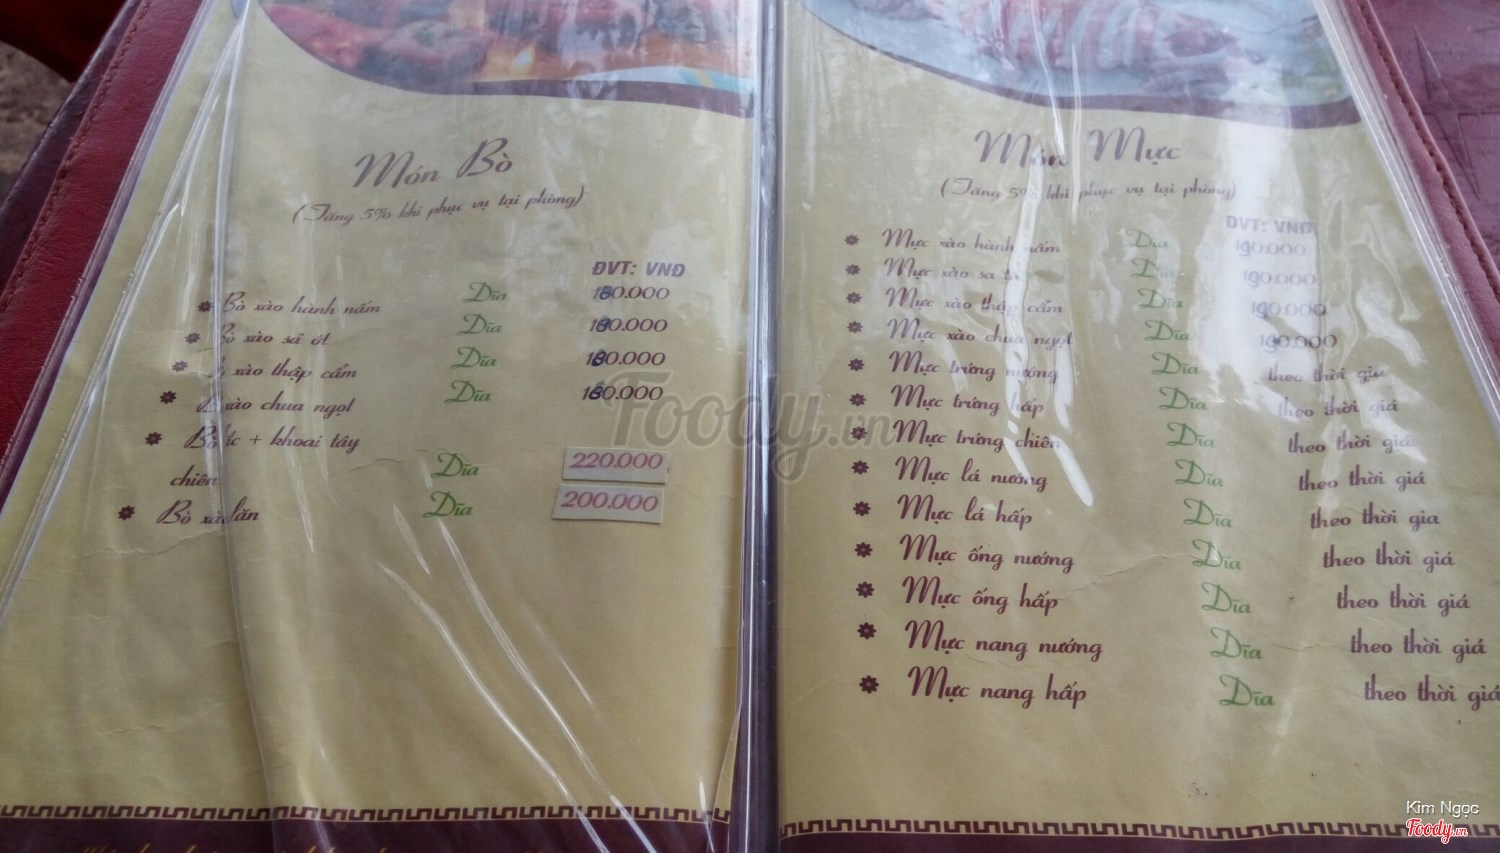 Món Bò
(Tăng 5% khi phục vụ tại phòng)
ĐVT: VNĐ
Bò xào hành nấm Dĩa 180.000
Bò xào sả ớt Dĩa 180.000
xào thập cẩm Dĩa 180.000
xào chua ngọt Dĩa 160.000
+ khoai tây
chiên Dĩa 220.000
Bò xào lăn Dĩa 200.000
Món Mực
(Tăng 5% khi phục vụ tại phòng)
ĐVT: VNĐ
Mực xào hành nấm Dĩa 190.000
Mực xào sa tế Dĩa 190.000
Mực xào thập cẩm Dĩa 190.000
Mực xào chua ngọt Dĩa 190.000
Mực trứng nướng Dĩa theo thời giá
Mực trứng hấp Dĩa theo thời giá
Mực trứng chiên Dĩa theo thời giá
Mực lá nướng Dĩa theo thời giá
Mực lá hấp Dĩa theo thời giá
Mực ống nướng Dĩa theo thời giá
Mực ống hấp Dĩa theo thời giá
Mực nang nướng Dĩa theo thời giá
Mực nang hấp Dĩa theo thời giá
Foody.vn
Kim Ngọc
Foody.vn